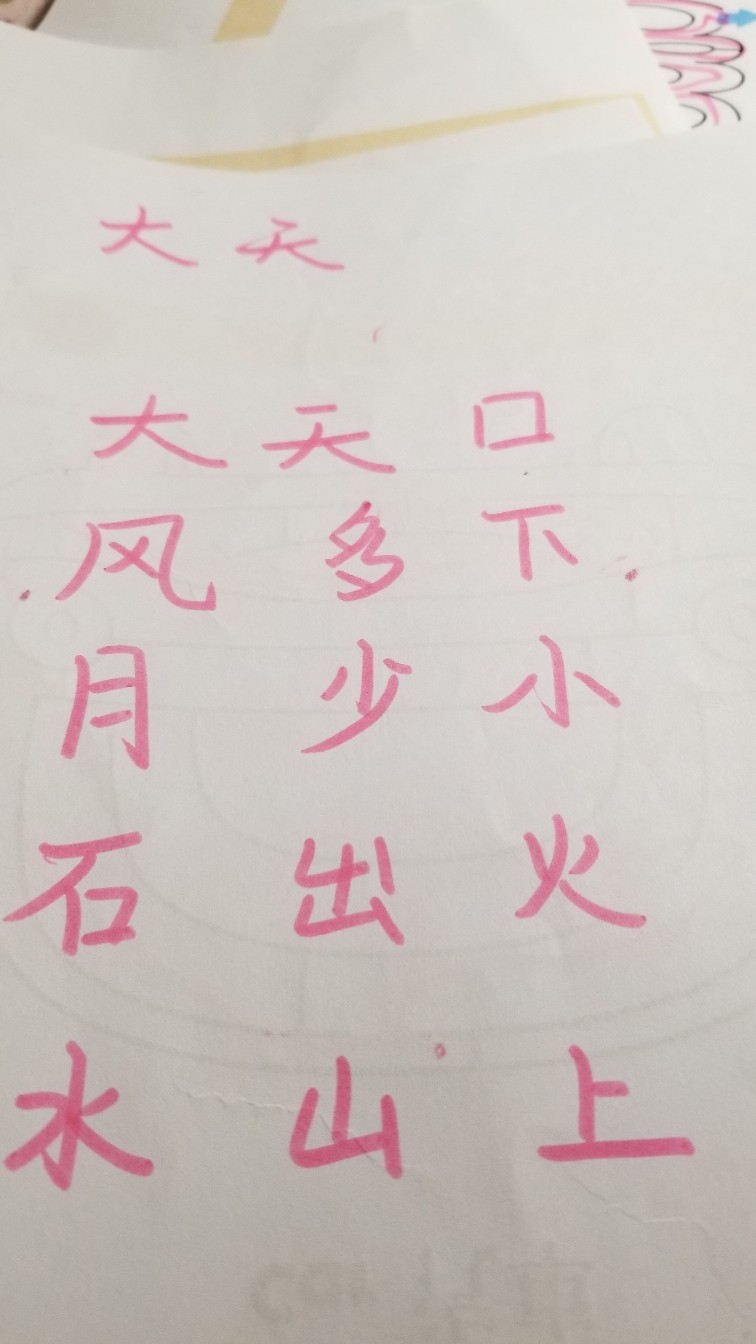 大 天
大 天 口
风 多 下
月 少 小
石 出 火
水 山 上